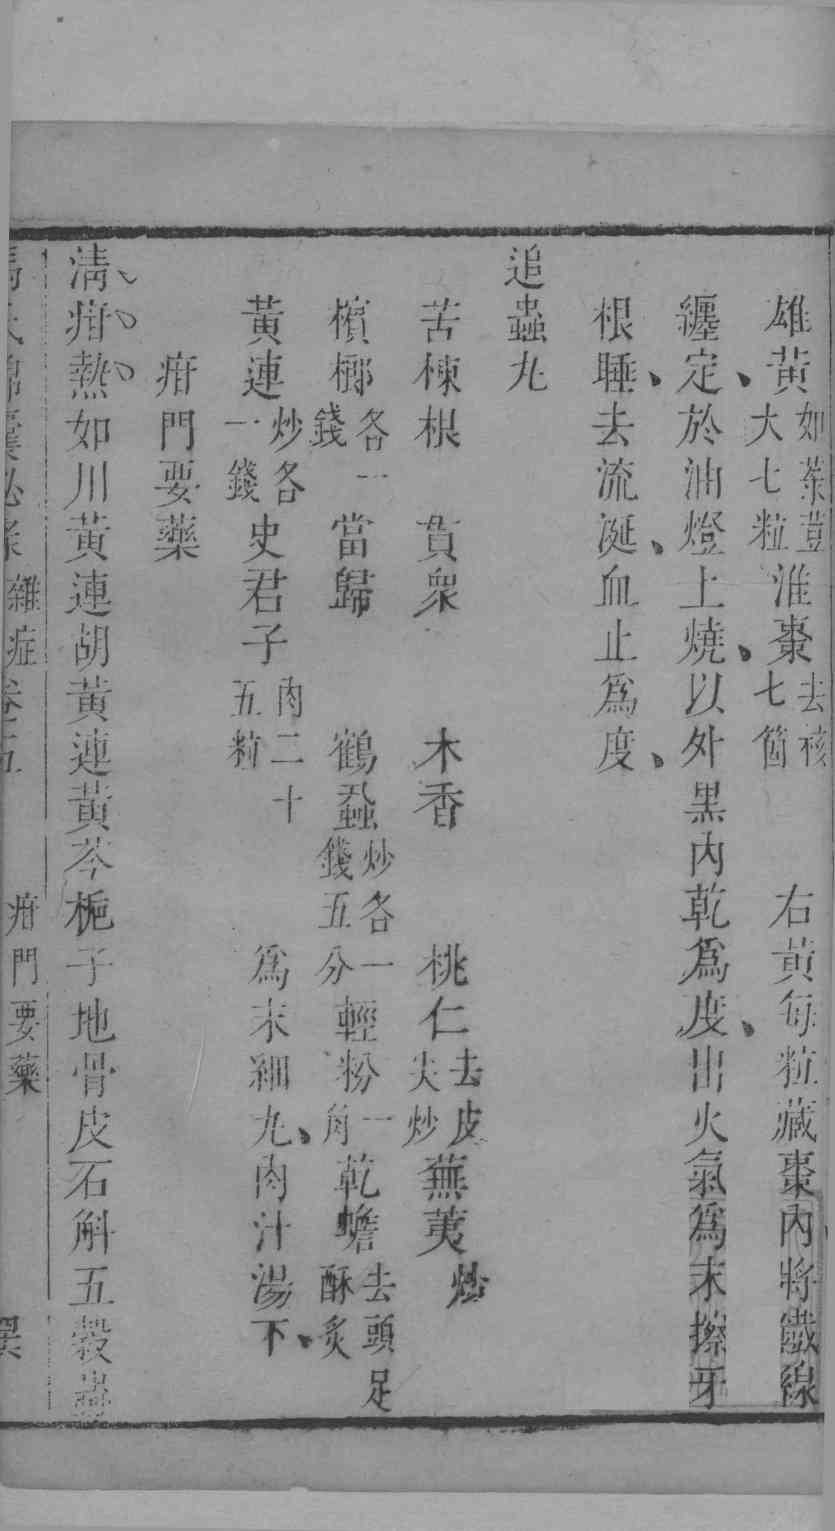 雄黃如菉荳大七粒淮棗去核七箇右黃每粒藏棗內將鐵線
纏定於油燈上燒以外黑內乾爲度出火氣爲末擦牙
根睡去流涎血止爲度
追蟲丸
苦楝根貫衆木香桃仁去皮尖炒蕪荑炒
檳榔各一錢當歸鶴蝨炒各一錢五分輕粉一角乾蟾去頭足酥炙
黃連炒各一錢史君子肉二十五粒爲末細丸肉汁湯下
疳門要藥
淸疳熱如川黃連胡黃連黃芩梔子地骨皮石斛五穀蟲
馮氏錦囊秘彔雜症卷五疳門要藥